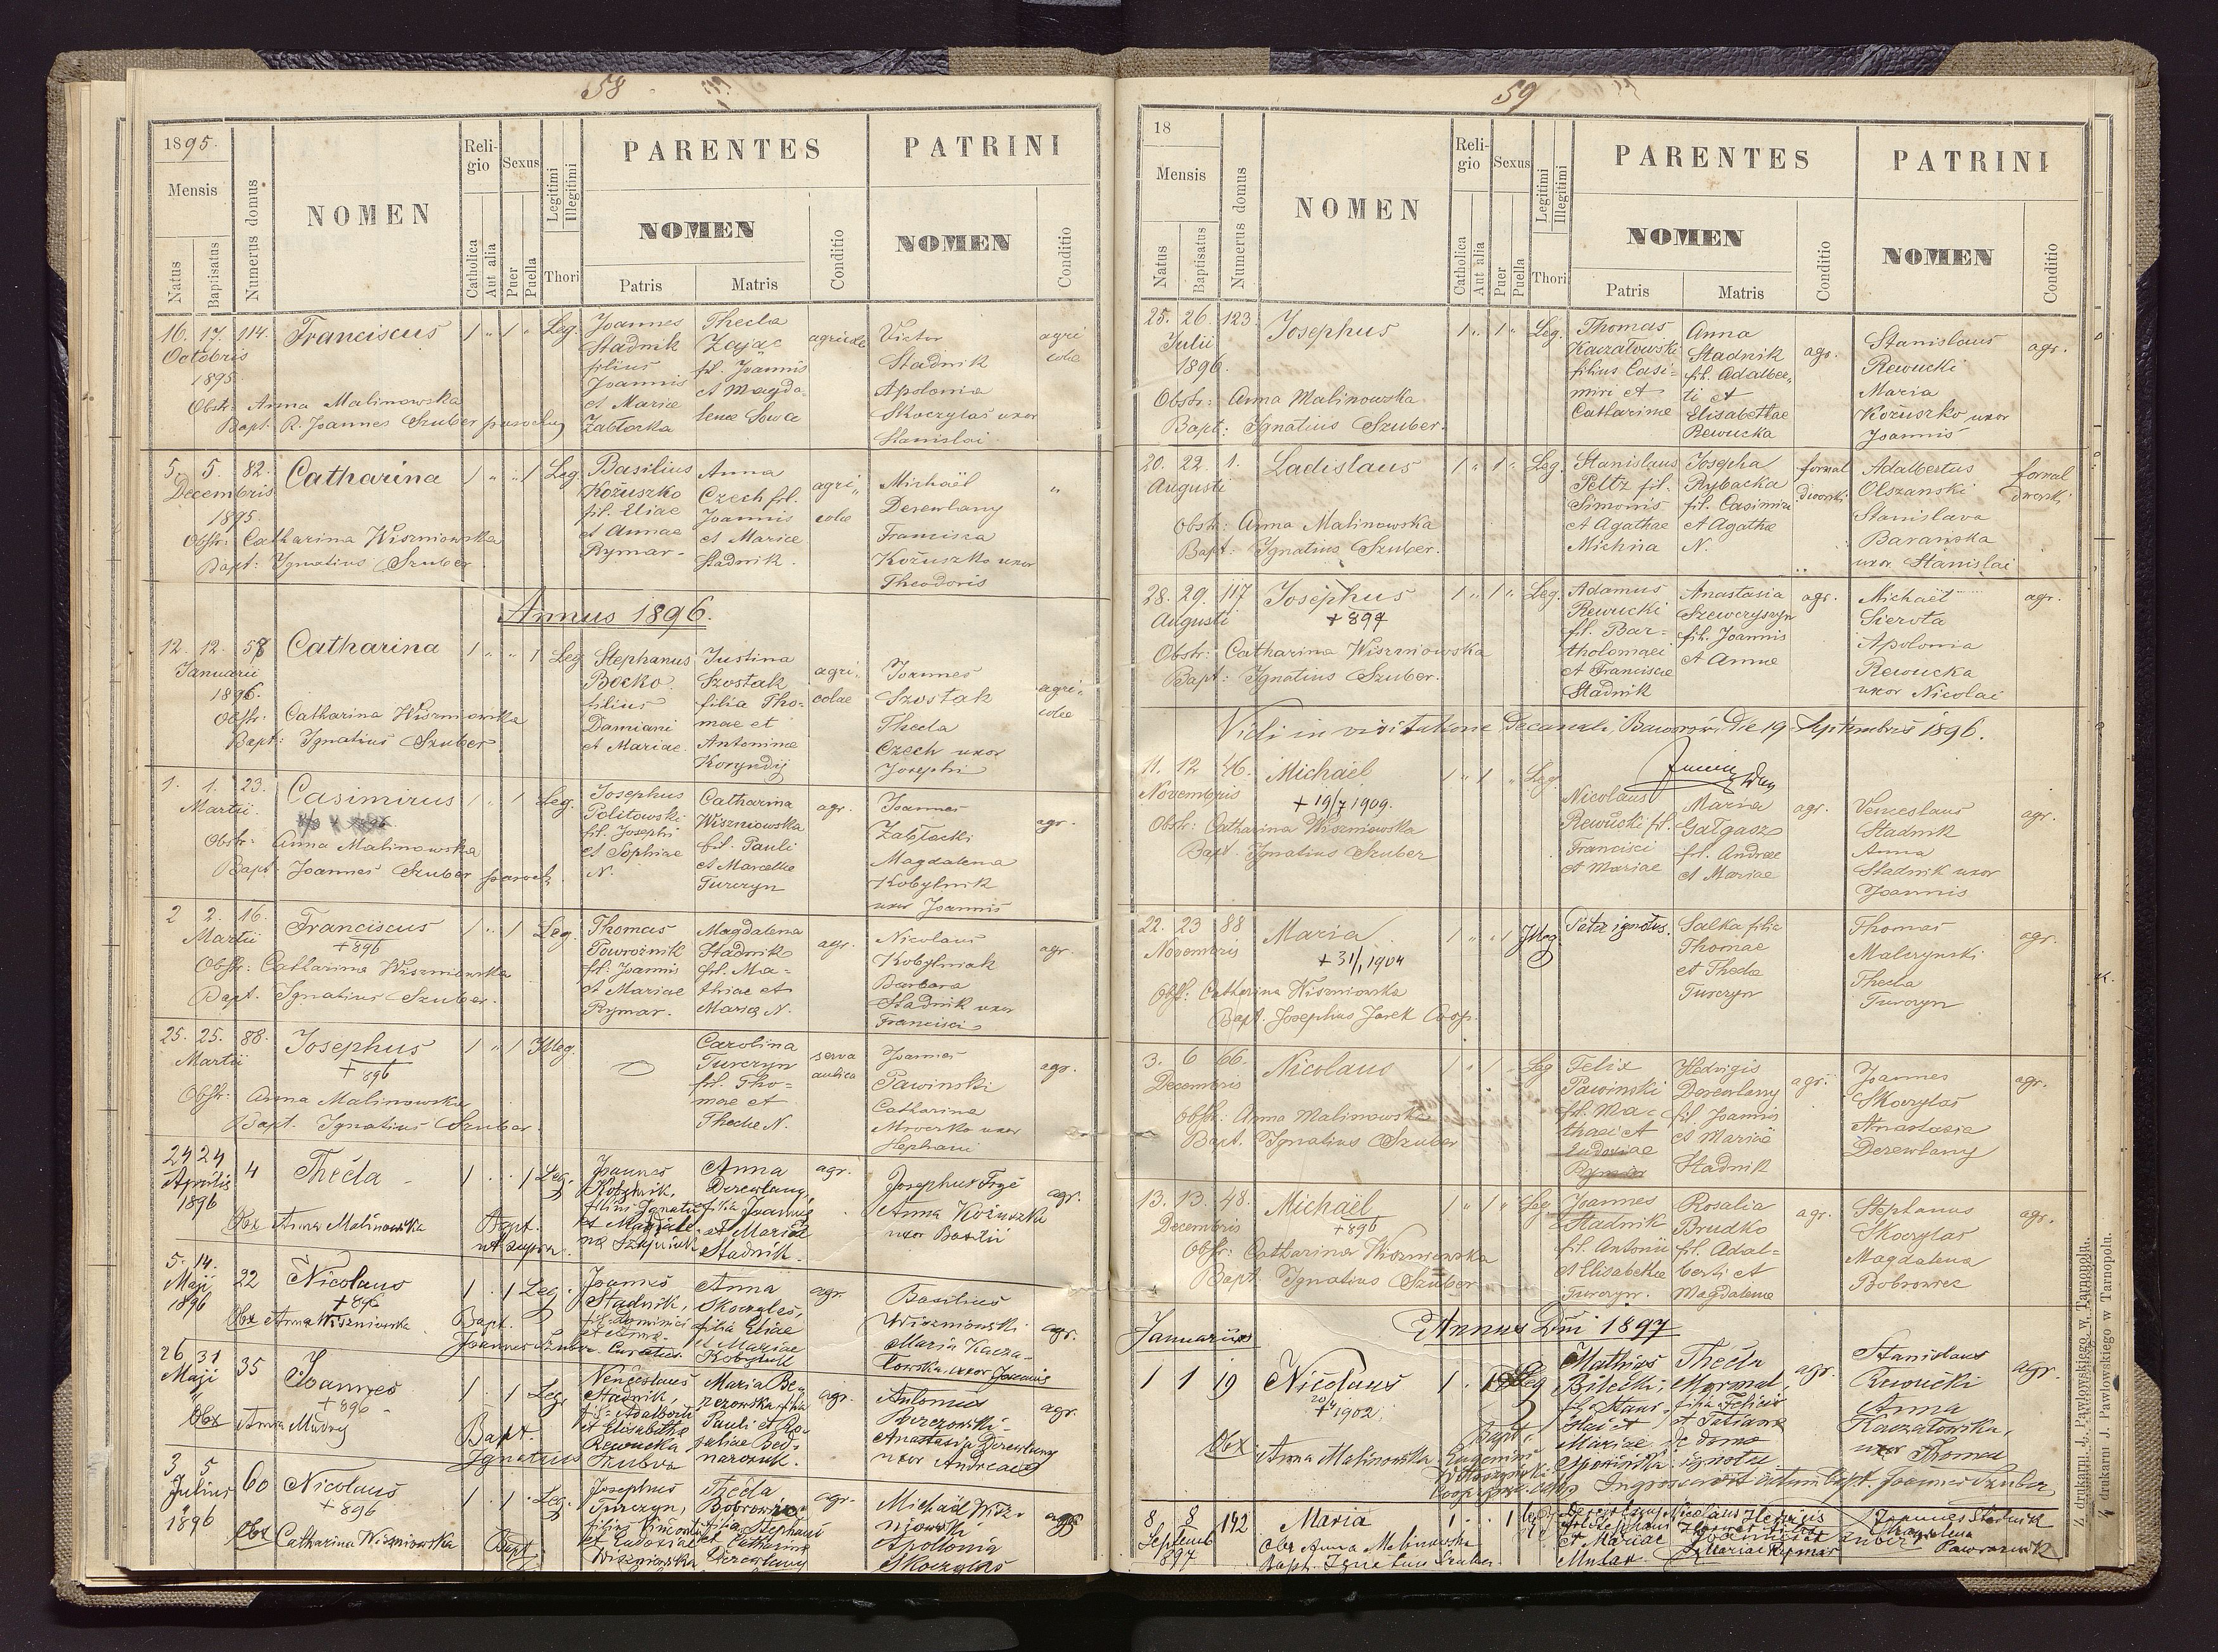 58
1895.
Mensis
Natus
Baptisatus
Numerus domus
NOMEN
Religio
Catholica
Aut alia
Sexus
Puer
Puella
Legitimi
Illegitimi
Thori
PARENTES
NOMEN
Patris
Matris
Conditio
PATRINI
NOMEN
Conditio
16. 17. 114. Franciscus 1 " 1 " Leg. Joannes Thecla agricolae Victor agri
Octobris Stadnik Zajac Stadnik colae
1895. filius fil. Joannis Apolonia
Obstr: Anna Malinowska Joannis et Magda- Skoczylas uxor
Bapt. R. Joannes Szuber parochus et Mariae lenae Sowa Stanislai
Zabłocka
5. 5. 82. Catharina 1 " " 1 Leg. Basilius Anna agri" Michaël "
Decembris Kożuszko Czech fil. colae Derewlany
1895. fil. Eliae Joannis Francisca
Obstr: Catharina Wiszniowska et Annae et Mariae Kożuszko uxor
Bapt: Ignatius Szuber Rymar- Stadnik. Theodoris
Annus 1896.
12. 12. 58 Catharina 1 " " 1 Leg Stephanus Justina agri" Joannes agri"
Januarii Bocko Szostak colae Szostak colae
1896. filius filia Tho- Thecla
Obstr: Catharina Wiszniowska Damiani mae et Czech uxor
Bapt: Ignatius Szuber et Mariae Antoninae Josephi
Koryndij
1. 1. 23. Casimirus 1 " 1 Leg. Josephus Catharina agr. Joannes agr.
Martii. Politowski Wiszniowska Zabłacki
Obstr: Anna Malinowska fil. Josephi fil. Pauli Magdalena
Bapt. Joannes Szuber paroch. et Sophiae et Marcellae Kobylnik
N. Turczyn uxor Joannis
2 2. 16. Franciscus 1 " 1 " Leg. Thomas Magdalena agr. Nicolaus agr.
Martii + 896 Powroźnik Stadnik Kobylniak
Obstr: Catharina Wiszniowska fil. Joannis fil. Ma- Barbara
Bapt. Ignatius Szuber. et Mariae thiae et Stadnik uxor
Rymar. Maria N. Francisci
25. 25. 88. Josephus 1 " 1 Illeg. Carolina serva Joannes agr.
Martii + 896 Turczyn aulica Pawinski
Obstr: Anna Malinowska fil. Tho- Catharina
Bapt. Ignatius Szuber. mae et Mroczko uxor
Theclae N. Stephani
24 24 4 Thecla 1 . . 1 Leg. Joannes Anna agr. Josephus Fryc agr.
Aprilis Kobylnik, Derewlany, Anna Kożuszko
1896 filius Ignatii filia Joannis uxor Basilii
Obx Anna Malinowska Bapt. et Magdale- et Mariae
ut supra. Stadnik.
5. 14. 22 Nicolaus 1 . 1 Leg. Joannes Anna agr. Basilius agr.
Maji + 896 Stadnik, Skoczylas, Wiszniowski
1896 fil. Dominici filia Eliae Maria Kacza-
Obx Anna Wiszniowska Bapt. et Anna- et Mariae łowska, uxor Joannis
Joannes Szuber Curatus. Kobylnik
26 31 35 Joannes 1 . 1 Leg. Venceslaus Maria agr. Antonius agr.
Maji + 896 - Stadnik, filia
" fil. Adalberti Pauli et Ro- Anastasia Derewlany
Obx Anna Mudry Bapt. et Elisabethae saliae Bed- uxor Andreae
Ignatius Szuber Rewucka narczuk.
3 5 60 Nicolaus 1 . 1 . Leg. Josephus Thecla agr. Michael Wisz- agr.
Julius + 896 Turczyn, Bobrowna niowski
1896 filius Vincentii filia Stephani Apollonia
Obx Catharina Wiszniowska Bapt. et Eudoxiae et Catharinae Skoczylas
Wiszniowska Derewlany
59
18
Mensis
Natus
Baptisatus
Numerus domus
NOMEN
Religio
Catholica
Aut alia
Sexus
Puer
Puella
Legitimi
Illegitimi
Thori
PARENTES
NOMEN
Patris
Matris
Conditio
PATRINI
NOMEN
Conditio
25. 26. 123. Josephus 1 " 1 " Leg. Thomas Anna agr. Stanislaus agr.
Julii Kaczałowski Stadnik Rewucki
1896. filius Casi- fil. Adalber- Maria
Obstr: Anna Malinowska miri et ti et Kożuszko uxor
Bapt: Ignatius Szuber. Catharinae Elisabethae Joannis
Rewucka
20. 22. 1. Ladislaus 1 " 1 " Leg. Stanislaus Josepha fornal Adalbertus fornal
Augusti Peltz fil. Rybacka dworski Olszanski dworski
Obstr: Anna Malinowska Simonis fil. Casimiri Stanislava
Bapt: Ignatius Szuber. et Agathae et Agathae Baranska
Michna N. uxor Stanislai
28. 29. 117 Josephus 1 " 1 " Leg. Adamus Anastasia agr. Michaël agr.
Augusti + 897 Rewucki Szewczyszyn Sierota
Obstr: Catharina Wiszniowska fil. Bar- fil. Joannis Apolonia
Bapt: Ignatius Szuber. tholomaei et Annae Rewucka
et Franciscae uxor Nicolai
Stadnik
Vidi in visitatione Decanali, Baworów, die 19 Septembris 1896.
11. 12 46. Michaël 1 " 1 " Leg. Nicolaus Maria agr. Venceslaus agr.
Novembris + 19/7 1909. Rewucki fil. Gałgasz Stadnik
Obstr: Catharina Wiszniowska Francisci fil. Andreae Anna
Bapt. Ignatius Szuber et Mariae et Mariae Stadnik uxor
Joannis
22. 23 88 Maria 1 " " 1 Illeg Pater ignotus. Salka filia Thomas agr.
Novembris + 31/1 1904 Thomae Malczynski
Obstr: Catharina Wiszniowska et Theclae Thecla
Bapt. Josephus Jarek Coop. Turczyn Turczyn
3. 6 66. Nicolaus 1 " 1 . Leg Felix Hedvigis agr. Joannes agr.
Decembris Pawinski Derewlany Skoczylas
Obstr: Anna Malinowska fil. Ma- fil. Joannis Anastasia
Bapt. Ignatius Szuber thaei et et Mariae Derewlany
Eudoxiae Stadnik
13. 13. 48. Michaël 1 " 1 " Leg Joannes Rosalia agr. Stephanus agr.
Decembris + 896 Stadnik Brudko Skoczylas
Obstr: Catharina Wiszniewska fil. Antonii fil. Adal- Magdalena
Bapt. Ignatius Szuber et Elisabethae berti et Bobrowiec
Turczyn. Magdalenae
Januarius Annus Dni 1897
1 1 19 Nicolaus 1 . 1 Leg Mathias Thecla agr. Stanislaus agr.
1902 Bilecki, Mormal, Rewucki
filia Felicis Anna
Obx Anna Malinowska Bapt. et Tatianae Kaczałowska,
Mariae de domo uxor Thomae
ignotae
Ingrossavit actum bapt. Joannes Szuber
8 8 142 Maria 1 . . 1 leg Nicolaus Joannes Stadnik
Septemb Obx Anna Malinowska Magdalena
897 Bapt. Ignatius Szuber et Mariae Powroznik
Mariae Rymar
Z drukarni J. Pawłowskiego w Tarnopolu.
Z drukarni J. Pawłowskiego w Tarnopolu.